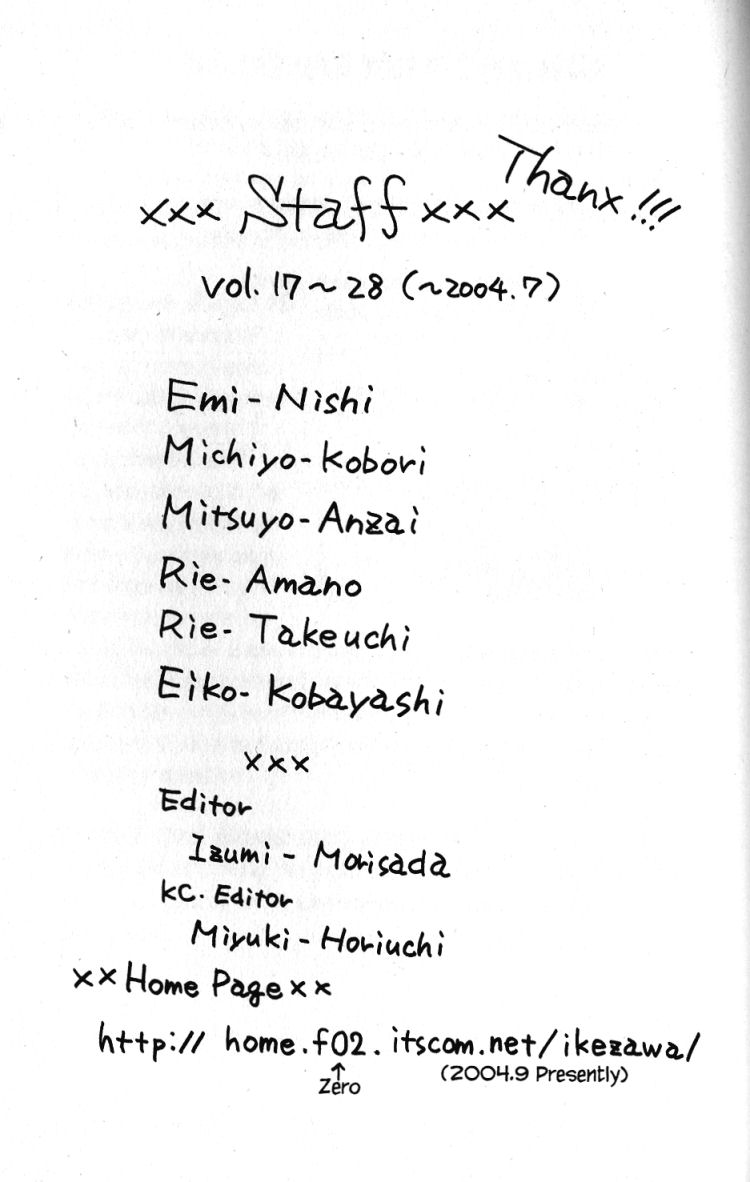 Thanx!!!
xxx Staff xxx
vol. 17~28 (~2004.7)
Emi-Nishi
Michiyo-Kobori
Mitsuyo-Anzai
Rie-Amano
Rie-Takeuchi
Eiko-Kobayashi
xxx
Editor
Izumi-Morisada
KC. Editor
Miyuki-Horiuchi
xx Home Page xx
http:// home.f02.itscom.net/ikezawa/
↑
Zero
(2004.9 Presently)